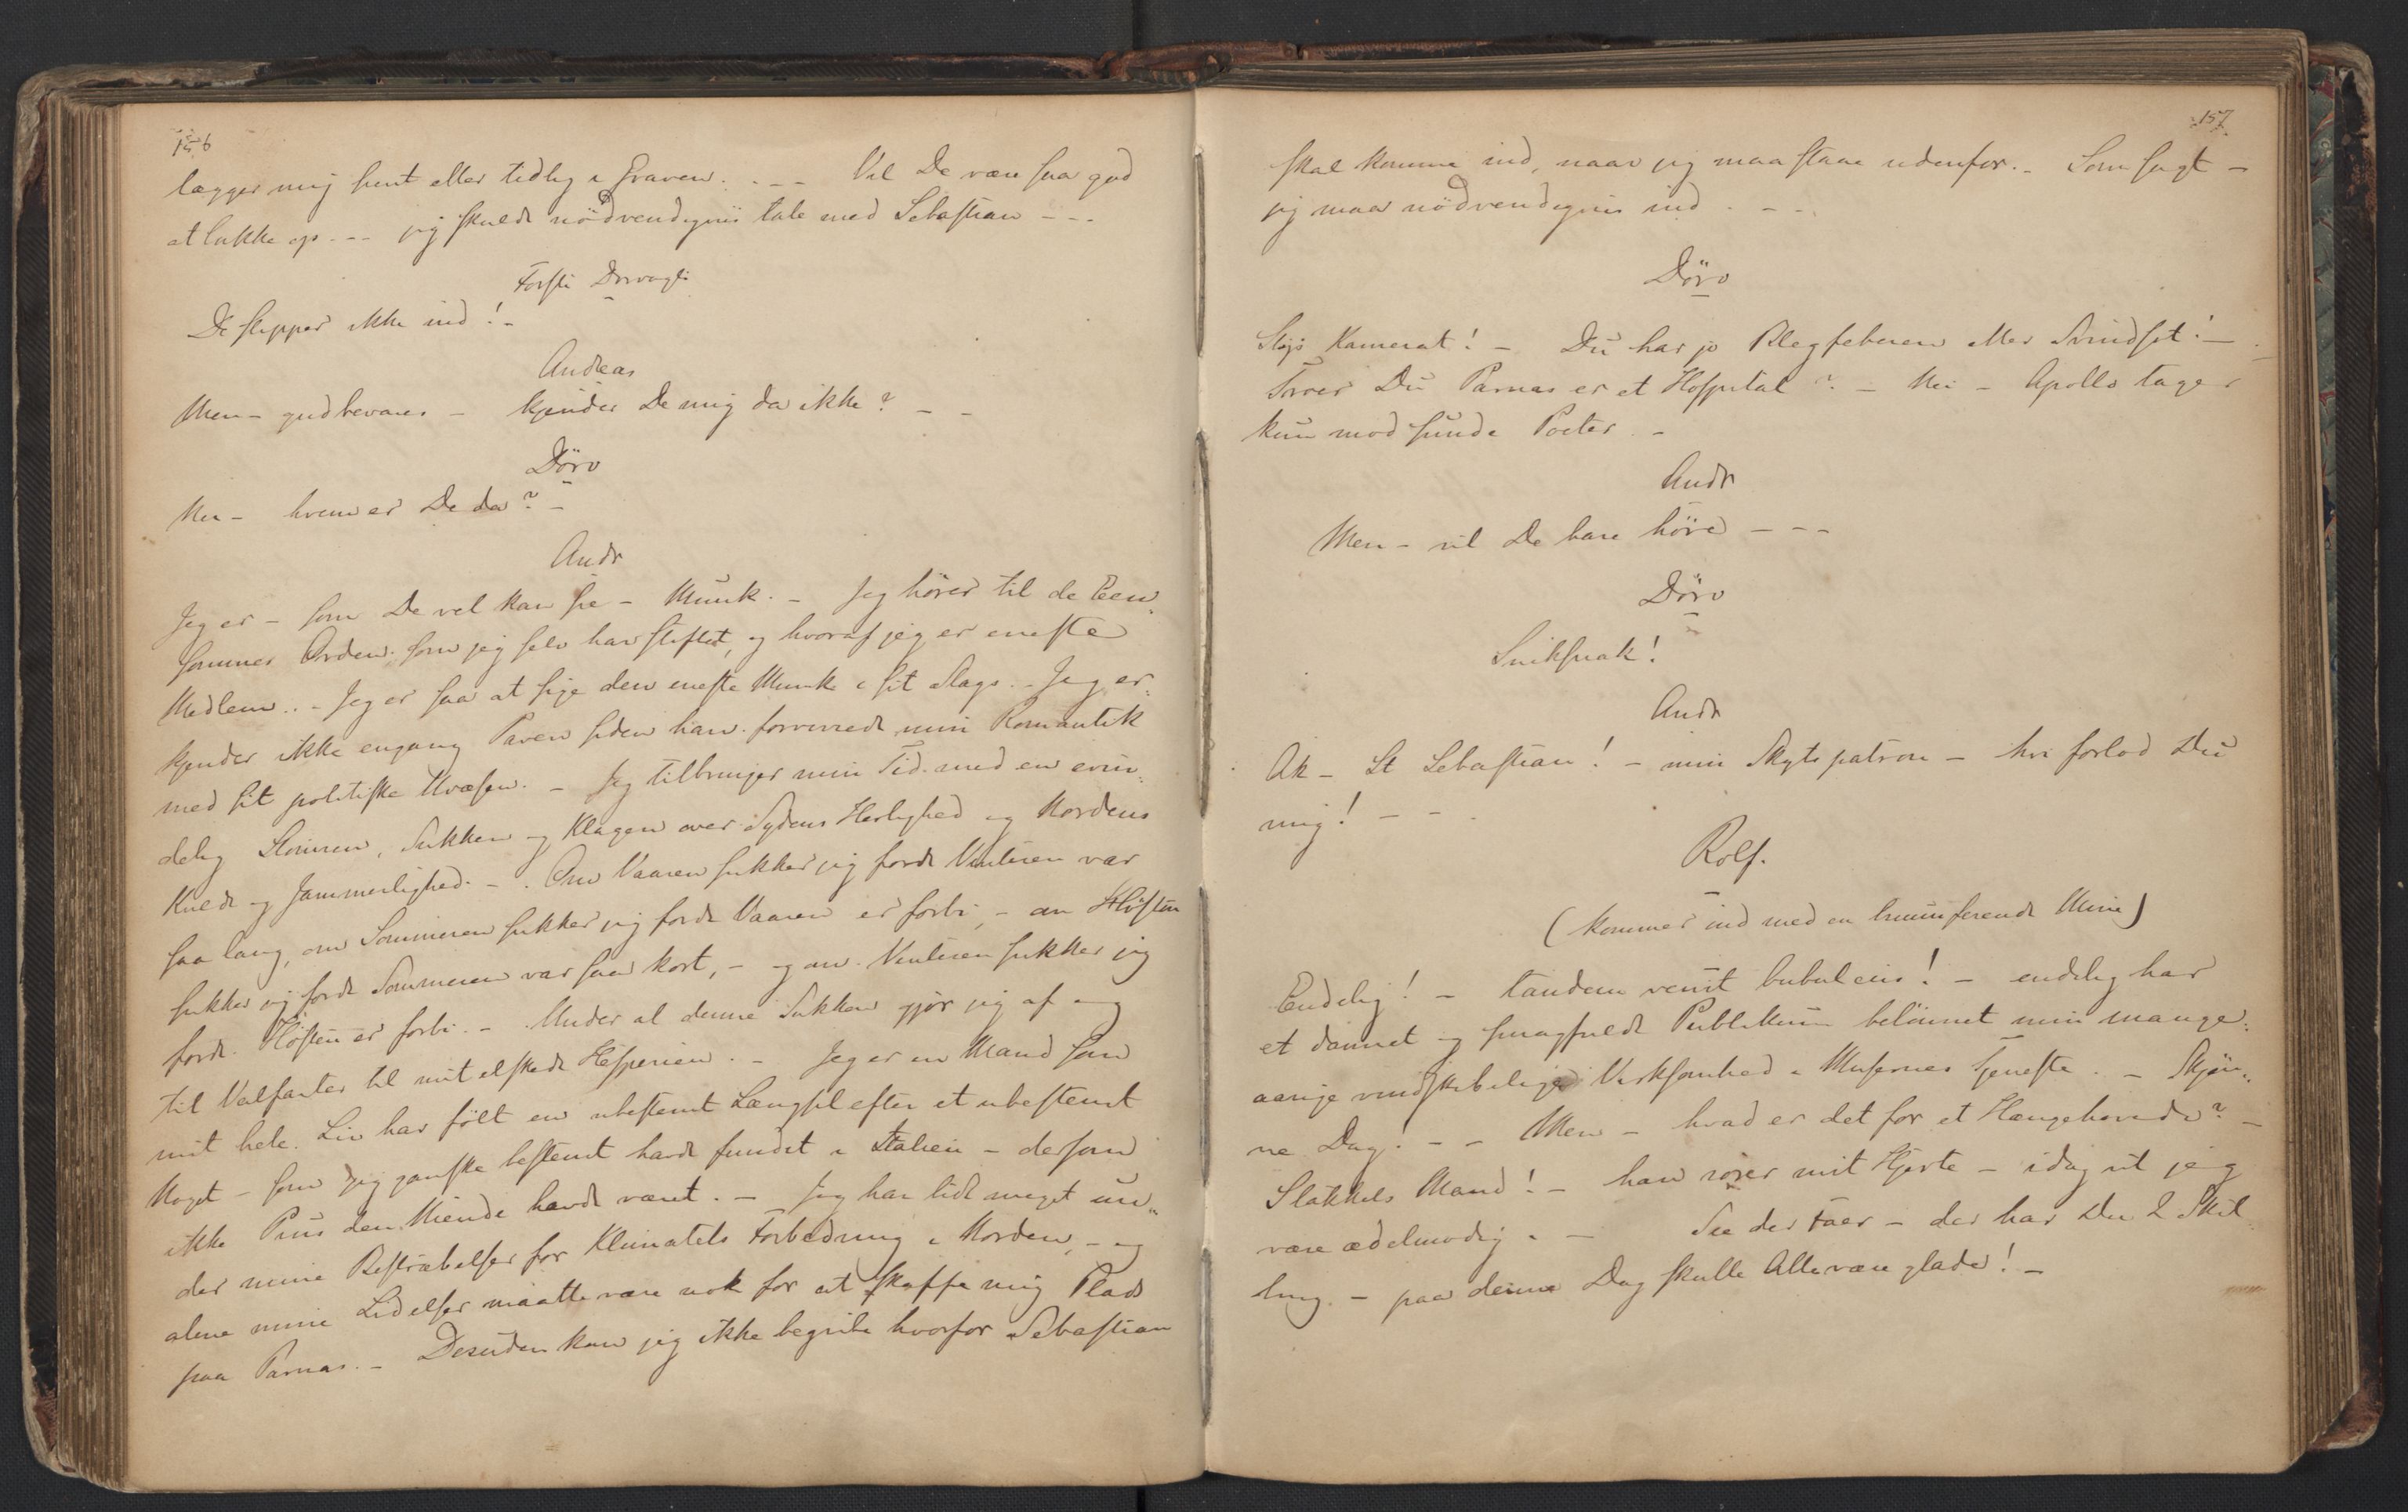 156
lægger mig sent eller tidlig i Graven. - - - Vil De være saa god
at lukke op. - - jeg skulde nödvendigviis tale med Sebastian - - -
Förste Dörvogter
De slipper ikke ind! -
Andreas
Men - gudbevares - kjender De mig da ikke? - -
Dörv
Nei - hvem er De da? -
Andr
Jeg er - som De vel kan se - Munk. - Jeg hörer til de Een„
sommes Orden som jeg selv har stiftet, og hvoraf jeg er eneste
Medlem. - Jeg er saa at sige den eneste Munk i sit Slags. - Jeg er„
kjender ikke engang Paven siden han forvirrede min Romantik
med sit politiske Uvæsen. - Jeg tilbringer min Tid med en evin„
delig Stönnen, Sukken og Klagen over Sydens Herlighed og Nordens
Kulde og Jammerlighed. - Om Vaaren sukker jeg fordi Vinteren var
saa lang, om Sommeren sukker jeg fordi Vaaren er forbi, - om Hösten
sukker jeg fordi Sommeren var saa kort, - og om Vinteren sukker jeg
fordi Hösten er forbi. - Under al denne Sukken gjör jeg af og
til Valfarter til mit elskede Hesperien. - Jeg er en Mand som
mit hele Liv har fölt en ubestemt Længsel efter et ubestemt
Noget - som jeg ganske bestemt havde fundet i Italien - dersom
ikke Pius den Niende havde været. - Jeg har lidt meget un„
der mine Bestræbelser for Klimatets Forbedring i Norden, - og
alene mine Lidelser maatte være nok for at skaffe mig Plads
paa Parnas. - Desuden kan jeg ikke begribe hvorfor Sebastian
157
skal komme ind, naar jeg maa staae udenfor. - Som sagt -
jeg maa nödvendigviis ind . - -
Dörv
Sløjs Kamerat! - Du har jo Blegfeberen eller Svindsot! -
Troer Du Parnas er et Hospital? - Nei - Apollo tager
kun mod sunde Poeter. -
Andr
Men - vil De bare höre - - -
Dörv
Sniksnak!
Andr
Ak - St Sebastian! - min Skytspatron - hvi forlod Du
mig! - -
Rolf.
(kommer ind med en triumferende Mine)
Endelig! - tandem venit bubulcus! - endelig har
et dannet og smagfuldt Publikum belönnet min mange„
aarige vindskibelige Virksomhed i Musernes Tjeneste. - Skjön„
ne Dag! - - Men - hvad er det for et Hængehoved? -
Stakkels Mand! - han rörer mit Hjerte - idag vil jeg
være ædelmodig. - See der Faer - der har Du 2 Skil
ling. - paa denne Dag skulle Alle være glade! -